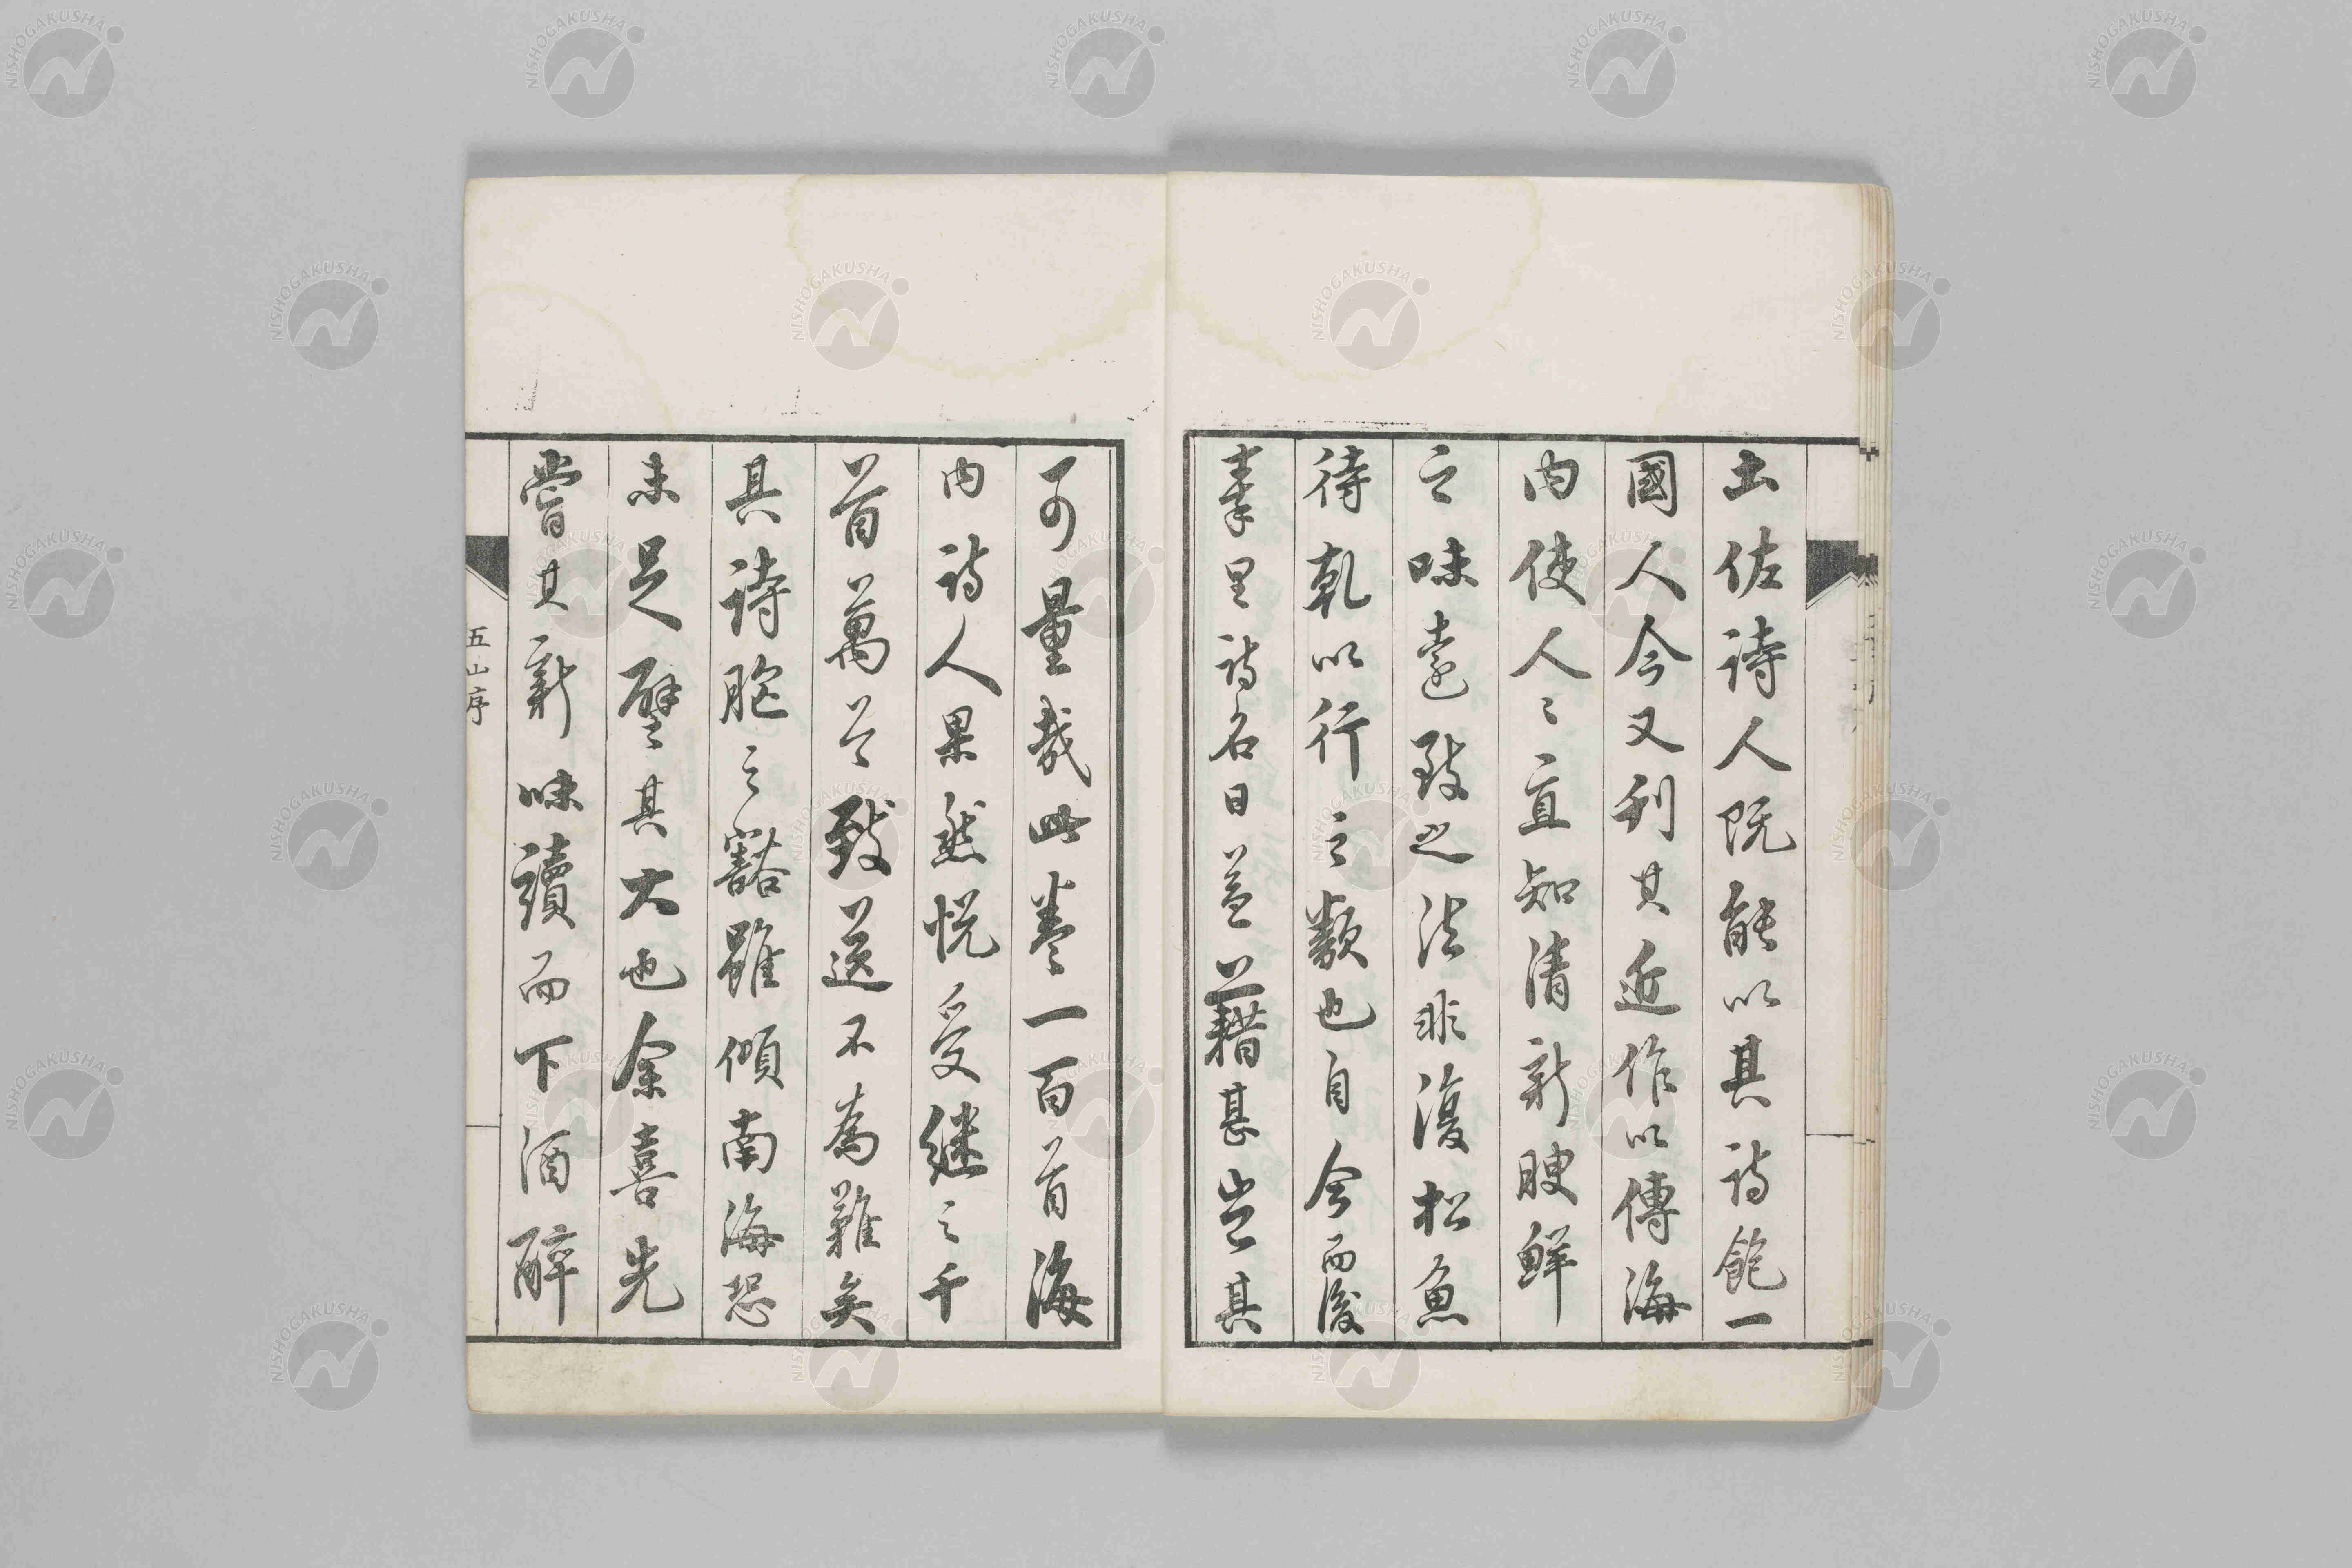 土佐詩人既能以其詩飽一
國人今又刻其近作以傳海
内使人々直知清新腴鮮
之味遠致之法非復松魚
待乾以行之類也自今而後
棗里詩名日益藉甚豈其
可量哉此巻一百首海
内詩人果然悦受継之千
首萬首致送不為難矣
其詩胞之豁雖傾南海恐
未足譬其大也余喜先
嘗其新味讀而下酒醉
五山序
NISHOGAKUSHA